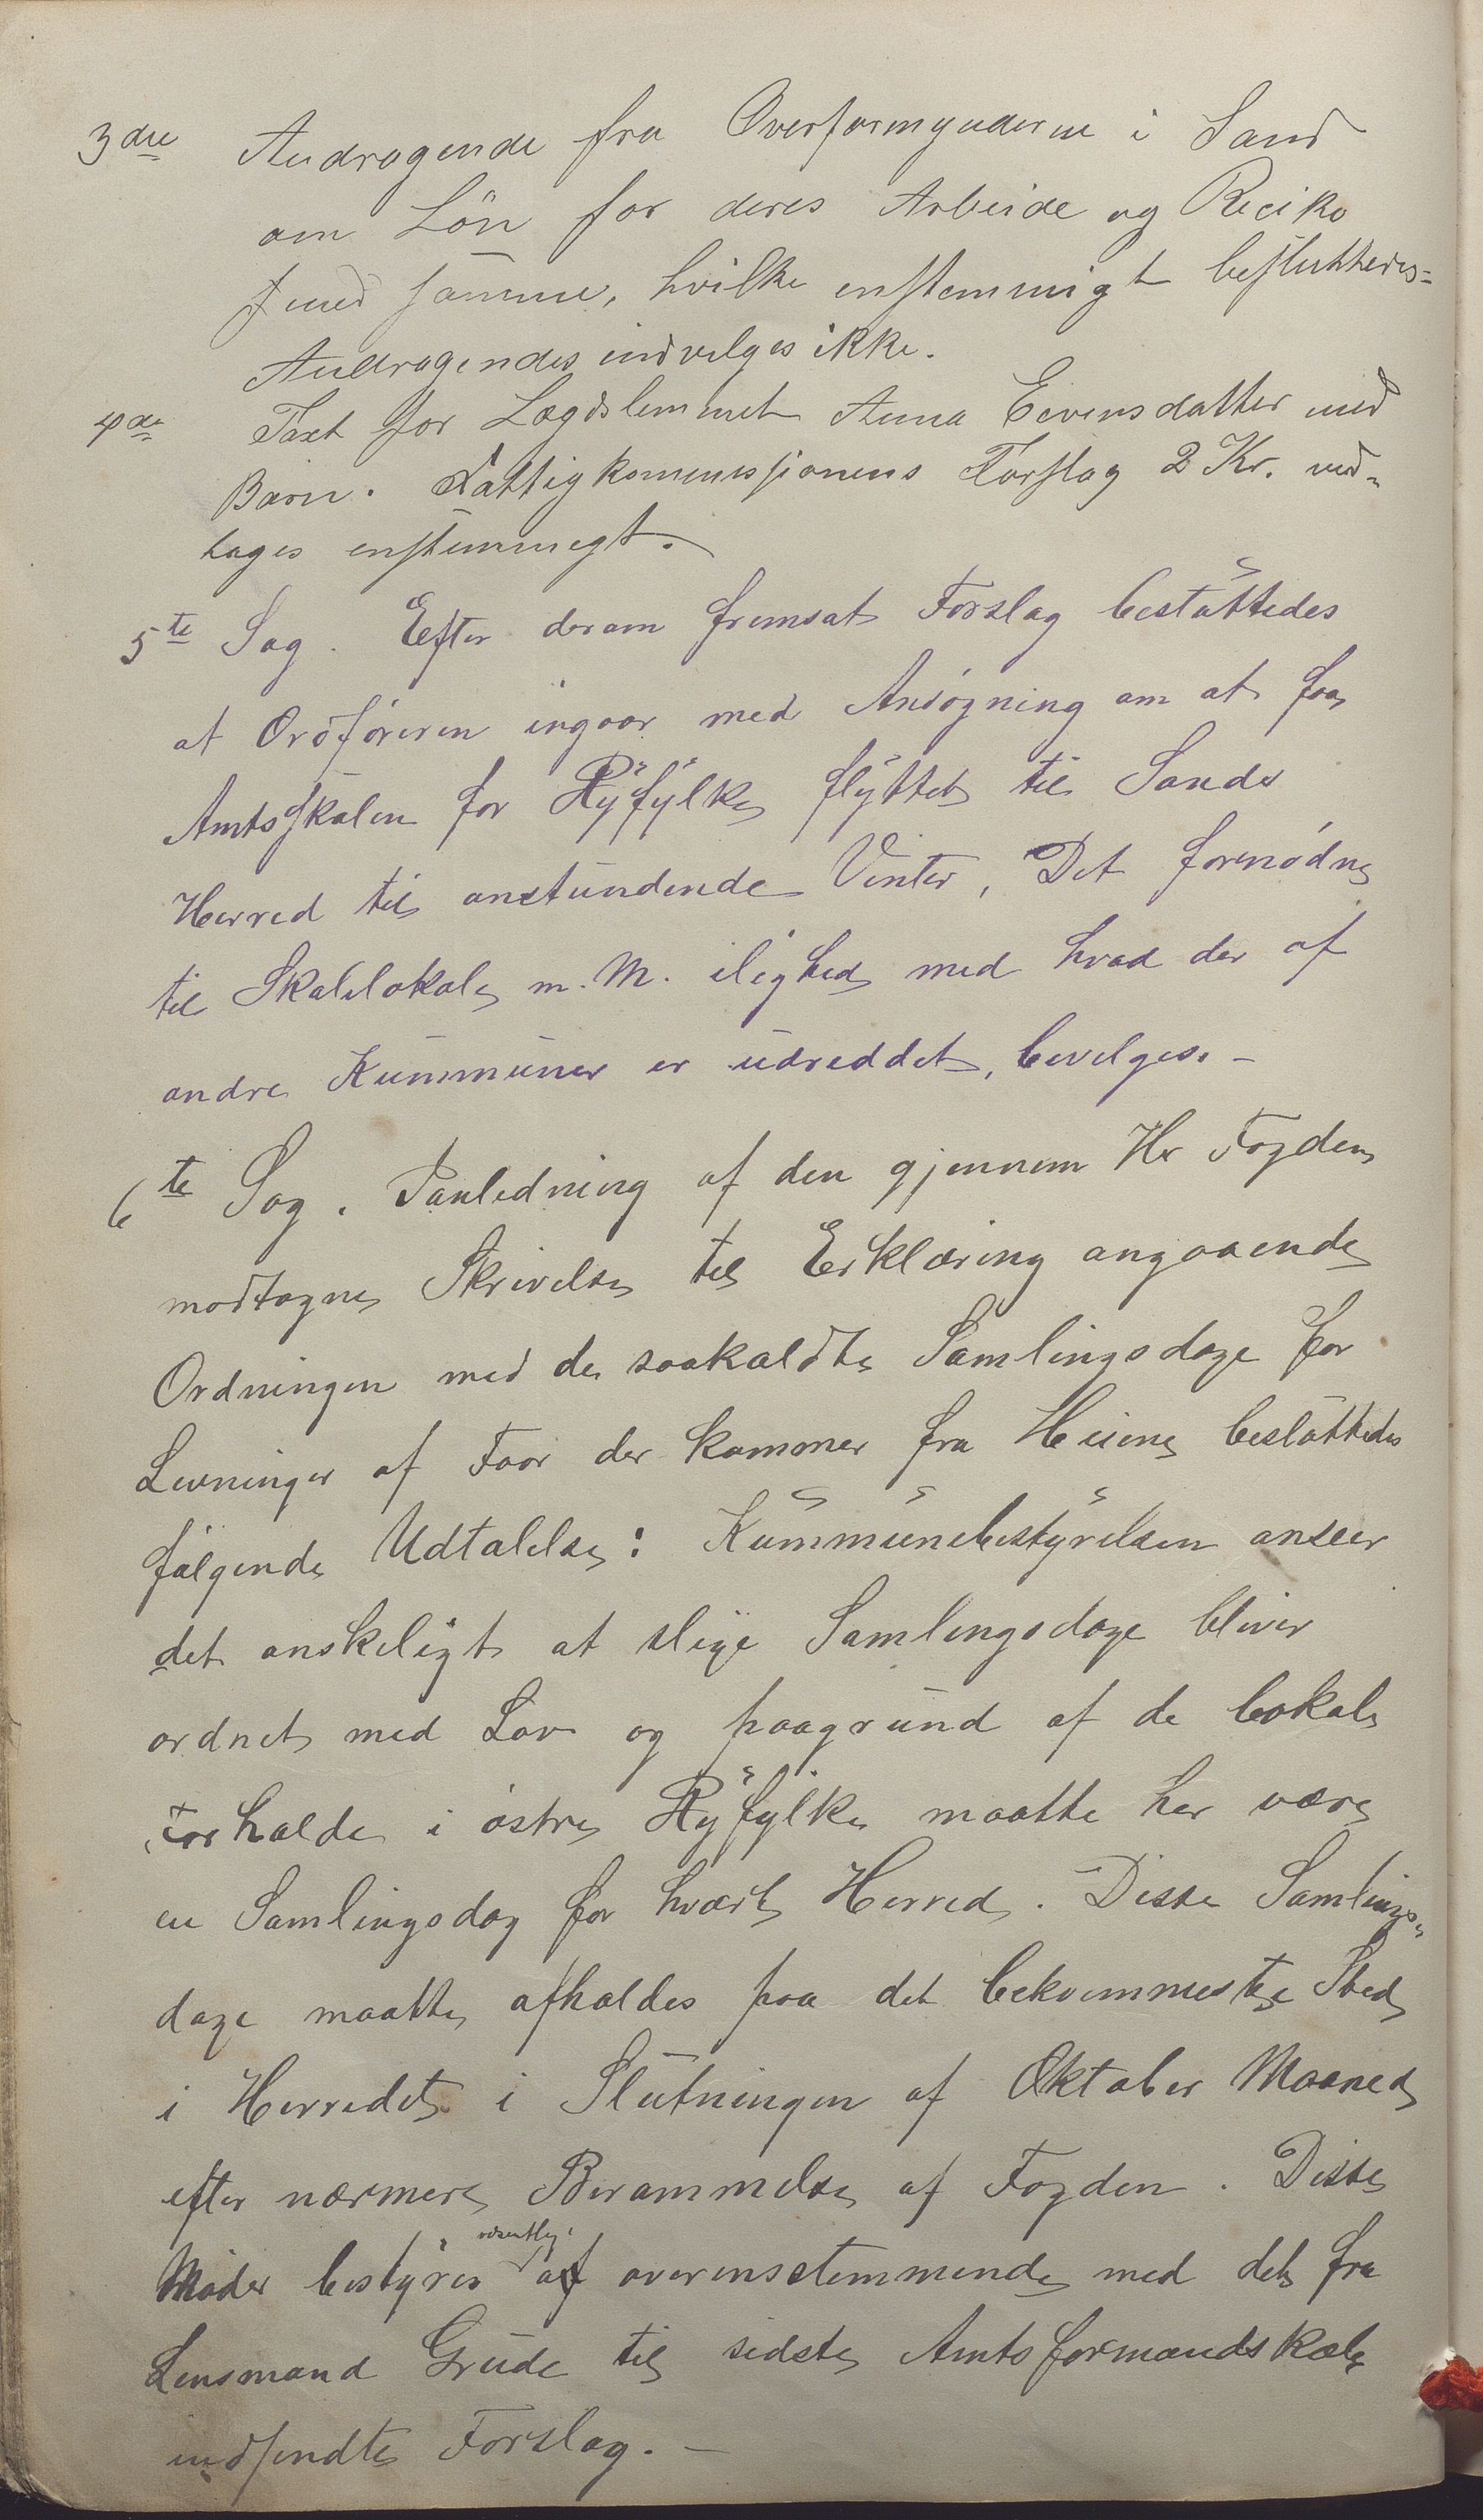 3die Andragende fra Overformynderne i Sand
om Løn for deres Arbeide og Reciko
med samme, hvilke enstemmigt besluttedes=
Andragendes indvilges ikke.
4de Taxt for Lægdslemmet Anna Eivensdatter med
Barn. Fattigkommissionens Forslag 2 Kr. ved-
tages enstemmigt.
5te Sag. Efter derom fremsat Forslag besluttedes
at Ordføreren ingaar med Ansøgning om at faa
Amtsskolen for Ryfylke flyttet til Sands
Herred til anstundende Vinter, Det fornødne
til Skolelokale m. M. ilighed med hvad der af
andre Kummuner er udreddet, bevelges. -
6te Sag. Ianledning af den gjennem Hr Fogden
modtagne Skrivelse til Erklæring angaaende
Ordningen med de saakaldte Samlingsdage for
Levninger af Faar der kommer fra Heiene besluttedes
følgende Udtalelse: Kummunebestyrelsen anseer
det ønskeligt at slige Samlingsdage bliver
ordnet med Lov og paagrund af de lokale
Forholde i østre Ryfylke maatte her være
en Samlingsdag for hvært Herred. Disse Samlings-
dage maatte afholdes paa det bekvemmeste Sted
i Herredet i Slutningen af Oktober Maaned
efter nærmere Berammelse af Fogden. Disse
Møder bestyres væsentlig overensstemmende med det fra
Lensmand Grude til sidste Amtsformandskab
indsendte Forslag. -